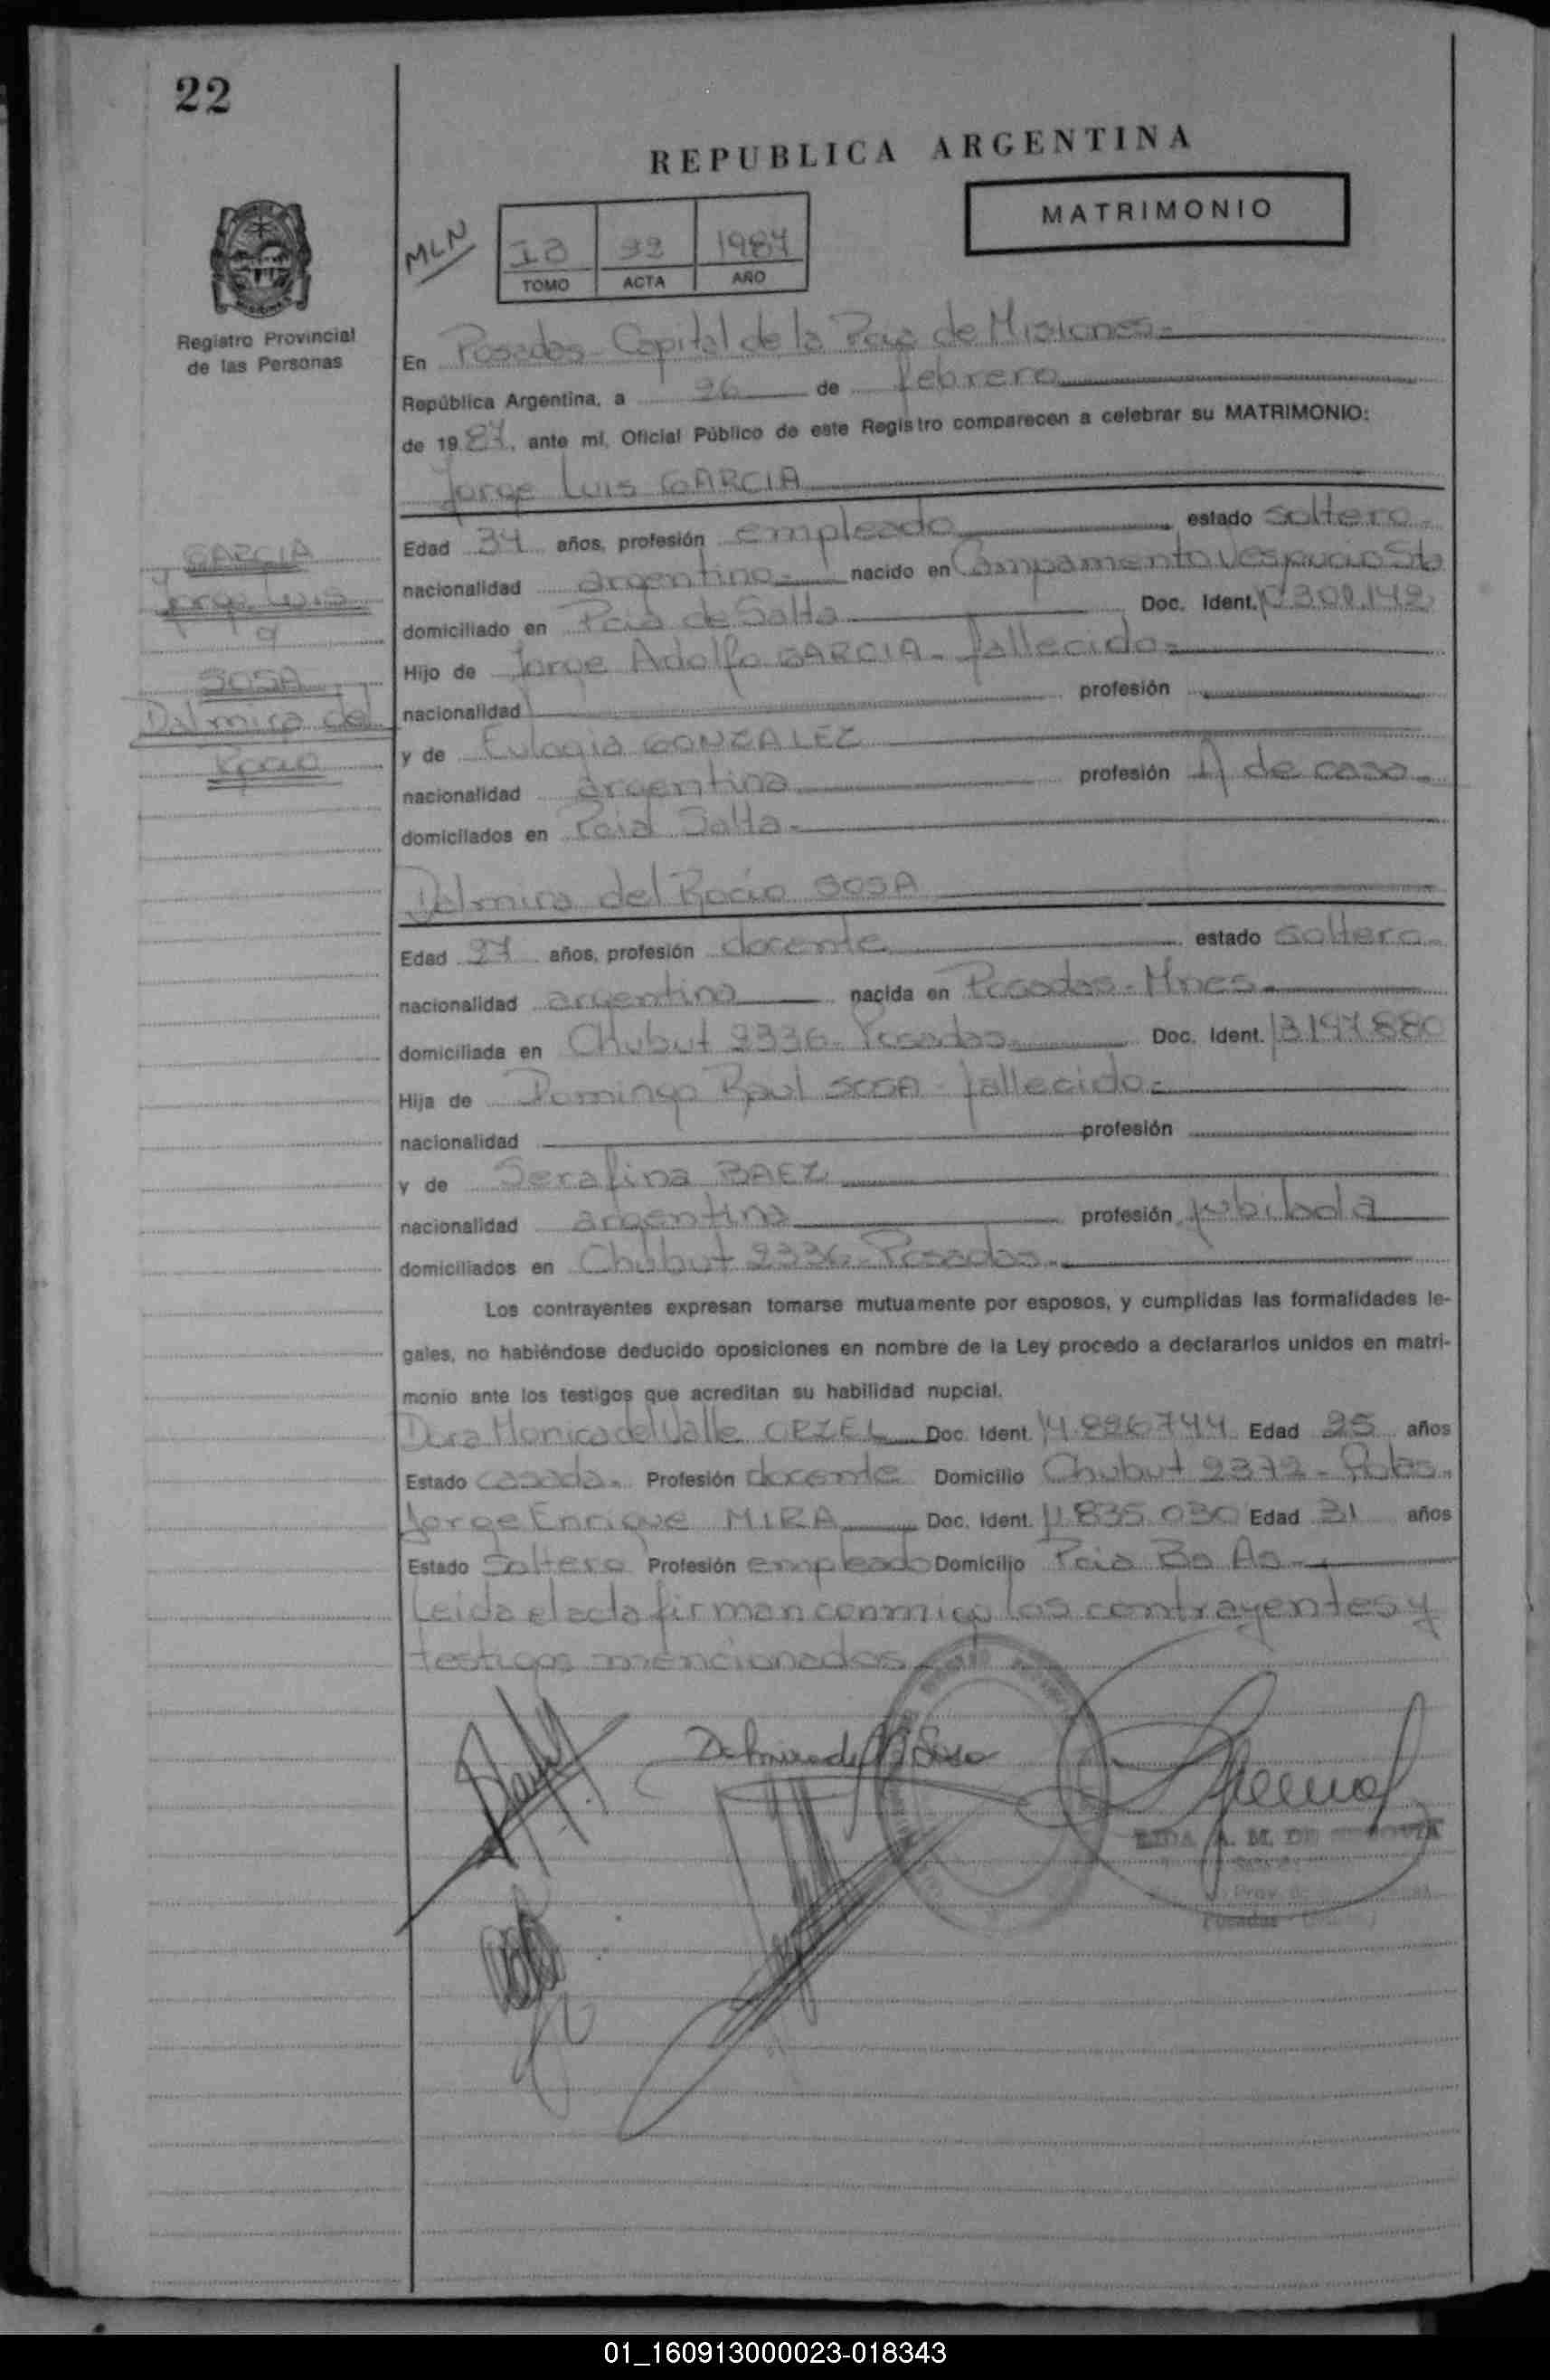 22
REPUBLICA ARGENTINA
MATRIMONIO
MLN
1987
TOMO ACTA AÑO
Registro Provincial
de las Personas
En Posadas - Capital de la Pcia de Misiones.-
República Argentina, a 26 de febrero
de 1987, ante mí, Oficial Público de este Registro comparecen a celebrar su MATRIMONIO:
Jorge Luis GARCIA
GARCIA
Jorge Luis
y
SOSA
Dalmira del
Rocio
Edad 34 años, profesión empleado estado soltero.-
nacionalidad argentino.- nacido en Campamento Vespucio Sta
domiciliado en Pcia de Salta Doc. Ident.
Hijo de Jorge Adolfo GARCIA - fallecido.-
nacionalidad profesión
y de Eulogia GONZALEZ
nacionalidad argentina profesión A de casa.-
domiciliados en Pcia Salta.-
Dalmira del Rocio SOSA
Edad 27 años, profesión docente estado soltera.-
nacionalidad argentina nacida en Posadas - Mnes.-
domiciliada en Chubut 2336 - Posadas Doc. Ident. 13.197.880
Hija de Domingo Raul SOSA - fallecido.-
nacionalidad profesión
y de Serafina BAEZ
nacionalidad argentina profesión jubilada
domiciliados en Chubut 2336 - Posadas.-
Los contrayentes expresan tomarse mutuamente por esposos, y cumplidas las formalidades le-
gales, no habiéndose deducido oposiciones en nombre de la Ley procedo a declararlos unidos en matri-
monio ante los testigos que acreditan su habilidad nupcial.
Dora Monica del Valle ORZEL Doc. Ident. 14.226744 Edad 25 años
Estado casada.- Profesión docente Domicilio Chubut 2372 - Pdas.
Jorge Enrique MIRA Doc. Ident. 11.835.030 Edad 31 años
Estado Soltero Profesión empleado Domicilio Pcia Bs As.-
Leida el acta firman conmigo los contrayentes y
testigos mencionados
A. M. DE
Posadas
01_160913000023-018343